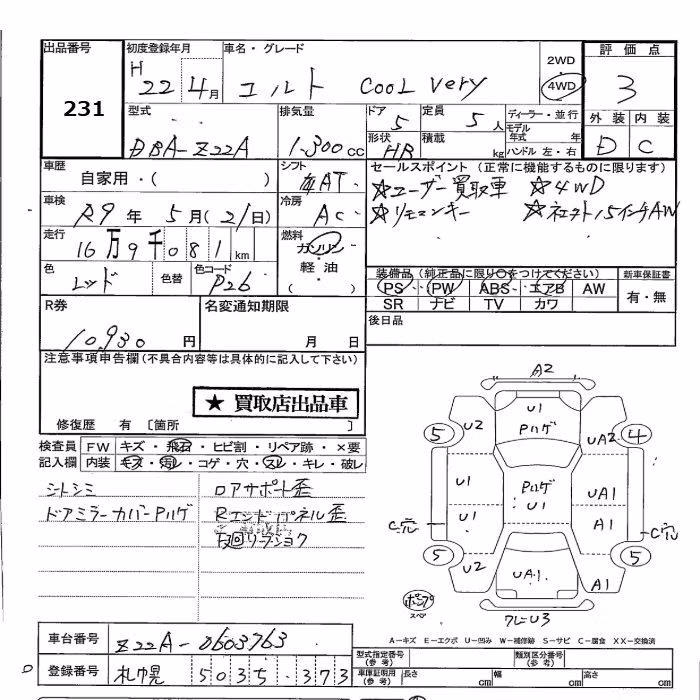 出品番号 初度登録年月 車名・グレード 評価点
231
H 22年 4月 コルト COOL Very 2WD 4WD 3
型式 排気量 ドア 定員 ディーラー・並行 外装 内装
DBA-Z22A 1,300cc 5 5人 モデル年式 年 D C
形状 積載 HB kg ハンドル 左・右
車歴 シフト セールスポイント(正常に機能するものに限ります)
自家用・( ) AT ☆ユーザー買取車 ☆4WD
車検 冷房 ☆リモコンキー
R9年 5月(21日) AC 15インチAW
走行 燃料
16万9千081km ガソリン
色 色替 色コード 軽・油 装備品(純正品に限り○をつけてください) 新車保証書
レッド P26 ( ) PS PW ABS エアB AW 有・無
SR ナビ TV カワ
R券 名変通知期限 後日品
10,930円 月 日
注意事項申告欄(不具合内容等は具体的に記入して下さい)
★ 買取店出品車
修復歴 有 〔箇所 〕
検査員 FW キズ・飛石・ヒビ割・リペア跡・×要
記入欄 内装 キズ・汚レ・コゲ・穴・スレ・キレ・破レ
シトシミ ロアサポート歪
ドアミラーカバーPハゲ Rエンドパネル歪
A2
U1
U2 Pハゲ UA2
5 4
U1 Pハゲ UA1
U1 U1 A1
C穴 C穴
5 5
U2 UA1 A1
U3
A-キズ E-エクボ U-凹み W-補修跡 S-サビ C-腐食 XX-交換済
車台番号 Z22A-0603763 型式指定番号(参考) 類別区分番号(参考)
登録番号 札幌 503 5 ・373 車庫証明用(参考) 長さ cm 幅 cm 高さ cm